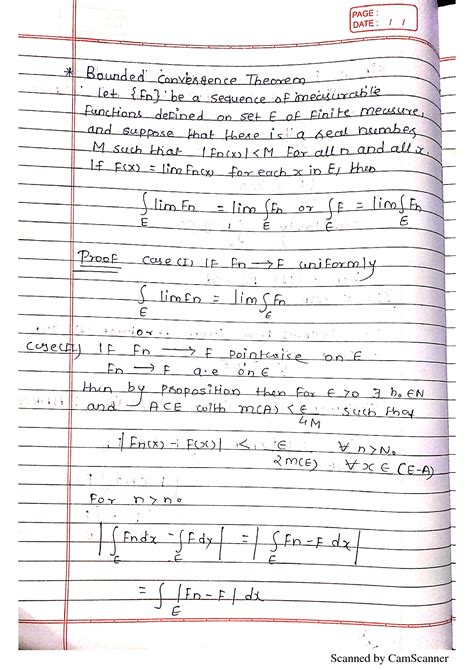 PAGE :
DATE : / /
* Bounded Convergence Theorem
Let {fn} be a sequence of measurable
functions defined on set E of finite measure,
and suppose that there is a real number
M such that |fn(x)| < M for all n and all x.
If f(x) = lim fn(x) for each x in E, then
∫_E lim fn = lim ∫_E fn or ∫_E f = lim ∫_E fn
Proof case (I) If fn → f uniformly
∫_E lim fn = lim ∫_E fn
or
case(II) If fn → f pointwise on E
fn → f a.e on E
then by proposition then for ε > 0 ∃ n₀ ∈ N
and A ⊂ E with m(A) < ε/4M such that
|fn(x) - f(x)| < ε/2m(E) ∀ n > N₀ ∀ x ∈ (E-A)
For n > n₀
|∫_E fn dx - ∫_E f dy| = |∫_E fn - f dx|
= ∫_E |fn - f| dx
Scanned by CamScanner